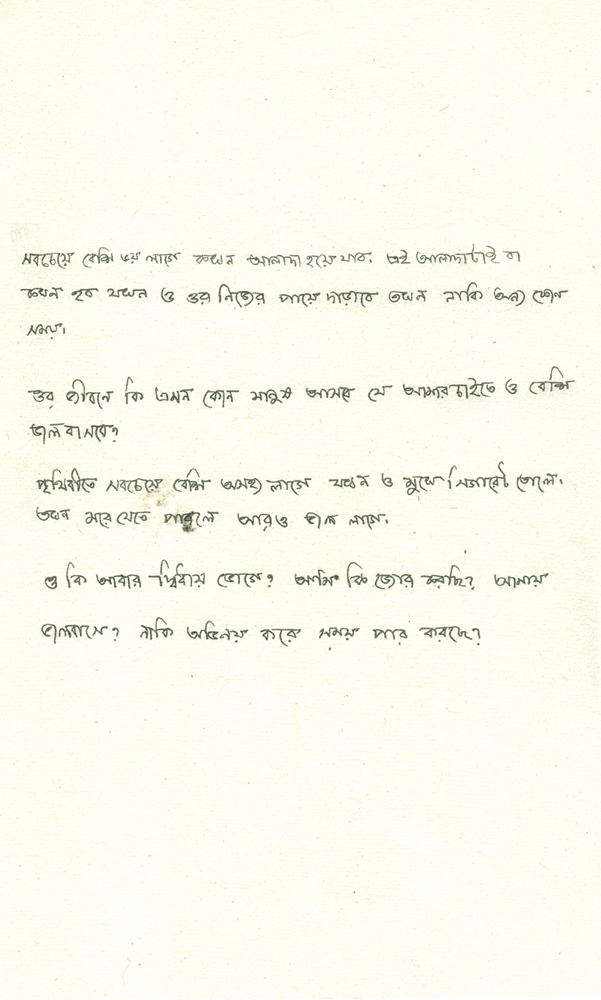 সবচেয়ে বেশি ভয় লাগে কখন আলাদা হয়ে যাব। এই আলাদাটাই বা
কখন হব যখন ও ওর নিজের পায়ে দাড়াবে তখন নাকি অন্য কোন
সময়।
ওর জীবনে কি এমন কোন মানুষ আসবে যে আমার চাইতে ও বেশি
ভালবাসবে?
পৃথিবীতে সবচেয়ে বেশি অসহ্য লাগে যখন ও মুখে সিগারেট তোলে।
তখন মরে যেতে পারলে আরও ভাল লাগে।
ও কি আবার দ্বিধায় ভোগে? আমি কি জোর করছি? আমায়
ভালবাসে? নাকি অভিনয় করে সময় পার করছে?